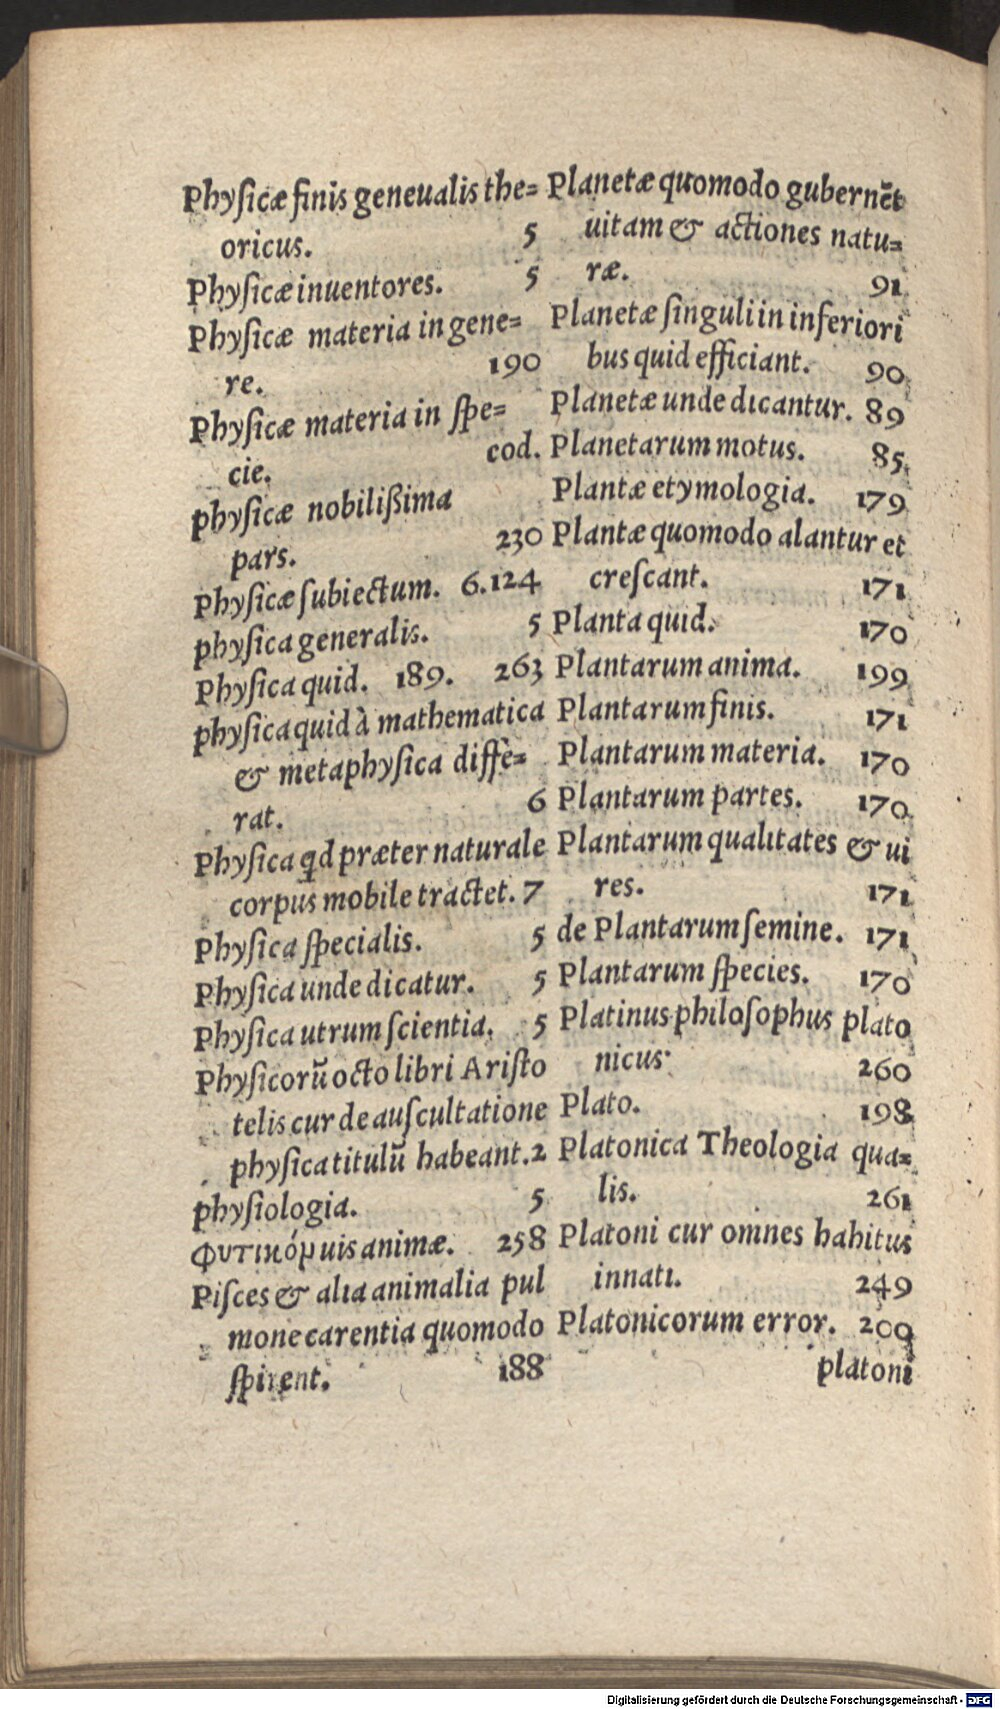 Phyſicæ finis geneualis the=
oricus. 5
Phyſicæ inuentores. 5
Phyſicæ materia in gene=
re. 190
Phyſicæ materia in ſpe=
cie. cod.
phyſicæ nobilißima
pars. 230
phyſicæ ſubiectum. 6.124
phyſica generalis. 5
Phyſica quid. 189. 263
phyſica quid à mathematica
& metaphyſica diffe=
rat. 6
Phyſica qd præter naturale
corpus mobile tractet. 7
Phyſica ſpecialis. 5
Phyſica unde dicatur. 5
Phyſica utrum ſcientia. 5
Phyſicorū octo libri Ariſto
telis cur de auſcultatione
phyſica titulū habeant. 2
phyſiologia. 5
φυτικόμ uis animæ. 258
Piſces & alia animalia pul
mone carentia quomodo
ſpirent. 188
Planetæ quomodo gubernēt
uitam & actiones natu=
ræ. 91
Planetæ ſinguli in inferiori
bus quid efficiant. 90
Planetæ unde dicantur. 89
Planetarum motus. 85
Plantæ etymologia. 179
Plantæ quomodo alantur et
creſcant. 171
Planta quid. 170
Plantarum anima. 199
Plantarum finis. 171
Plantarum materia. 170
Plantarum partes. 170
Plantarum qualitates & ui
res. 171
de Plantarum ſemine. 171
Plantarum ſpecies. 170
Platinus philoſophus plato
nicus 260
Plato. 198
Platonica Theologia qua=
lis. 261
Platoni cur omnes habitus
innati. 249
Platonicorum error. 209
platoni
Digitalisierung gefördert durch die Deutsche Forschungsgemeinschaft - DFG